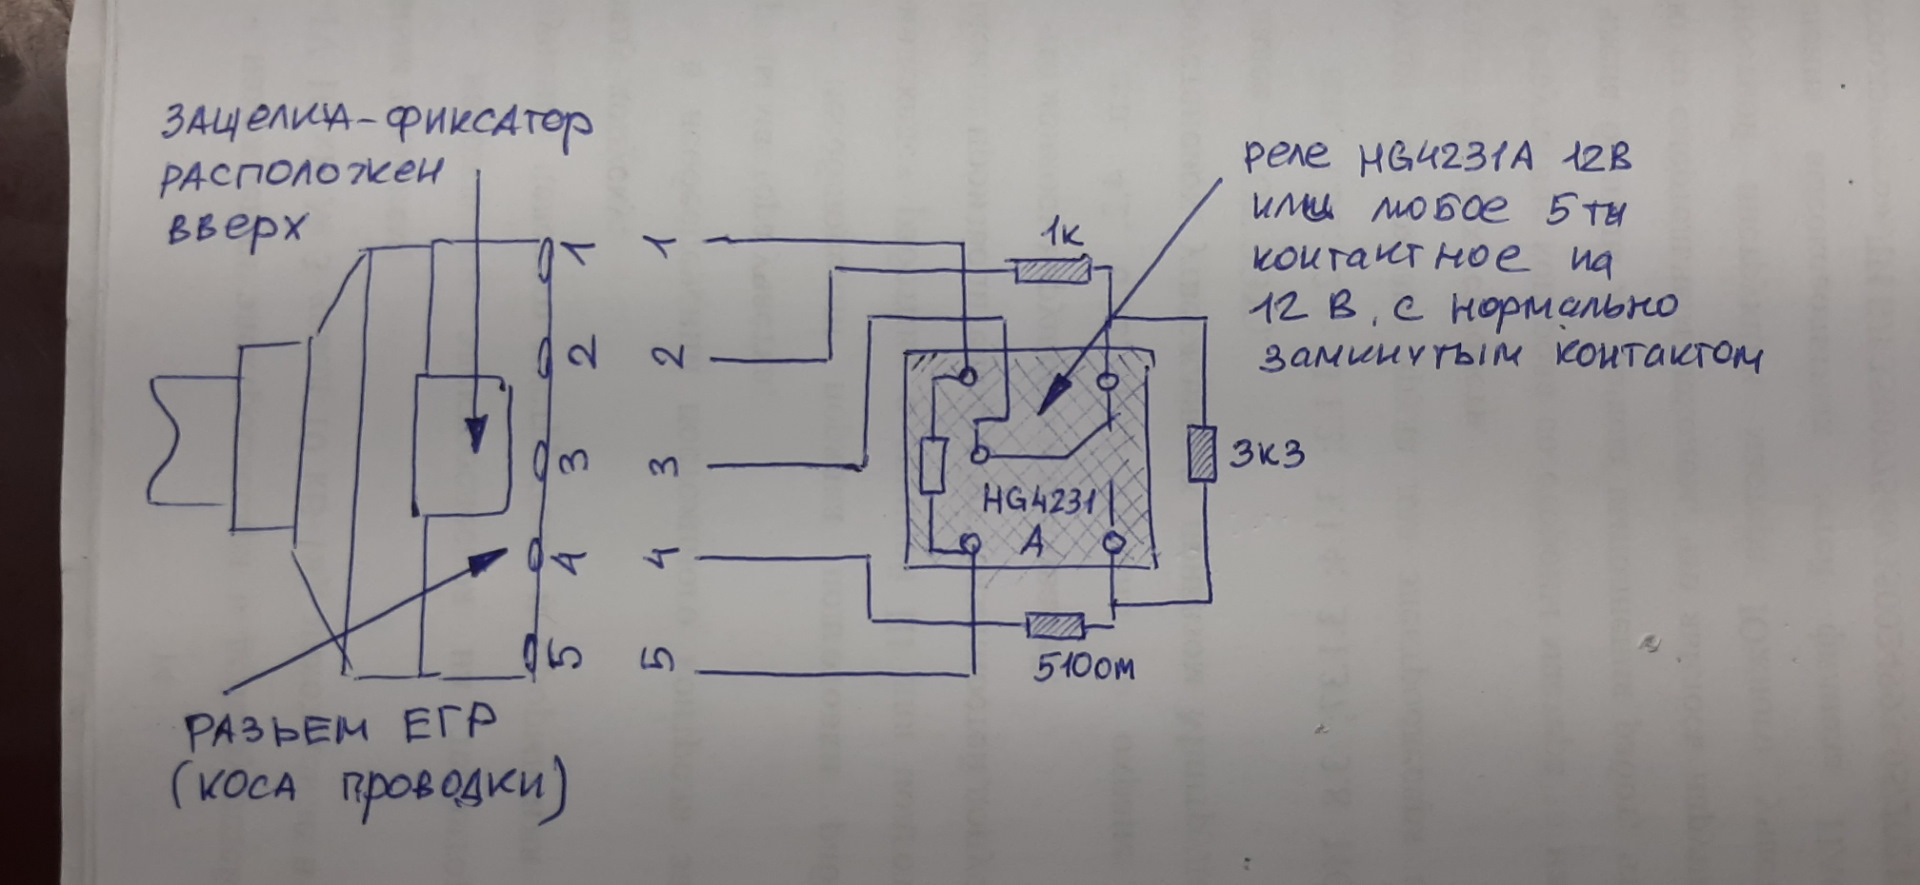 ЗАЩЕЛКА-ФИКСАТОР
РАСПОЛОЖЕН
ВВЕРХ
реле HG4231A 12В
или любое 5ти
контактное на
12 В, с нормально
замкнутым контактом
1к
1
1
2
2
3
3
4
4
5
5
3к3
HG4231
A
510ом
РАЗЬЕМ ЕГР
(КОСА ПРОВОДКИ)